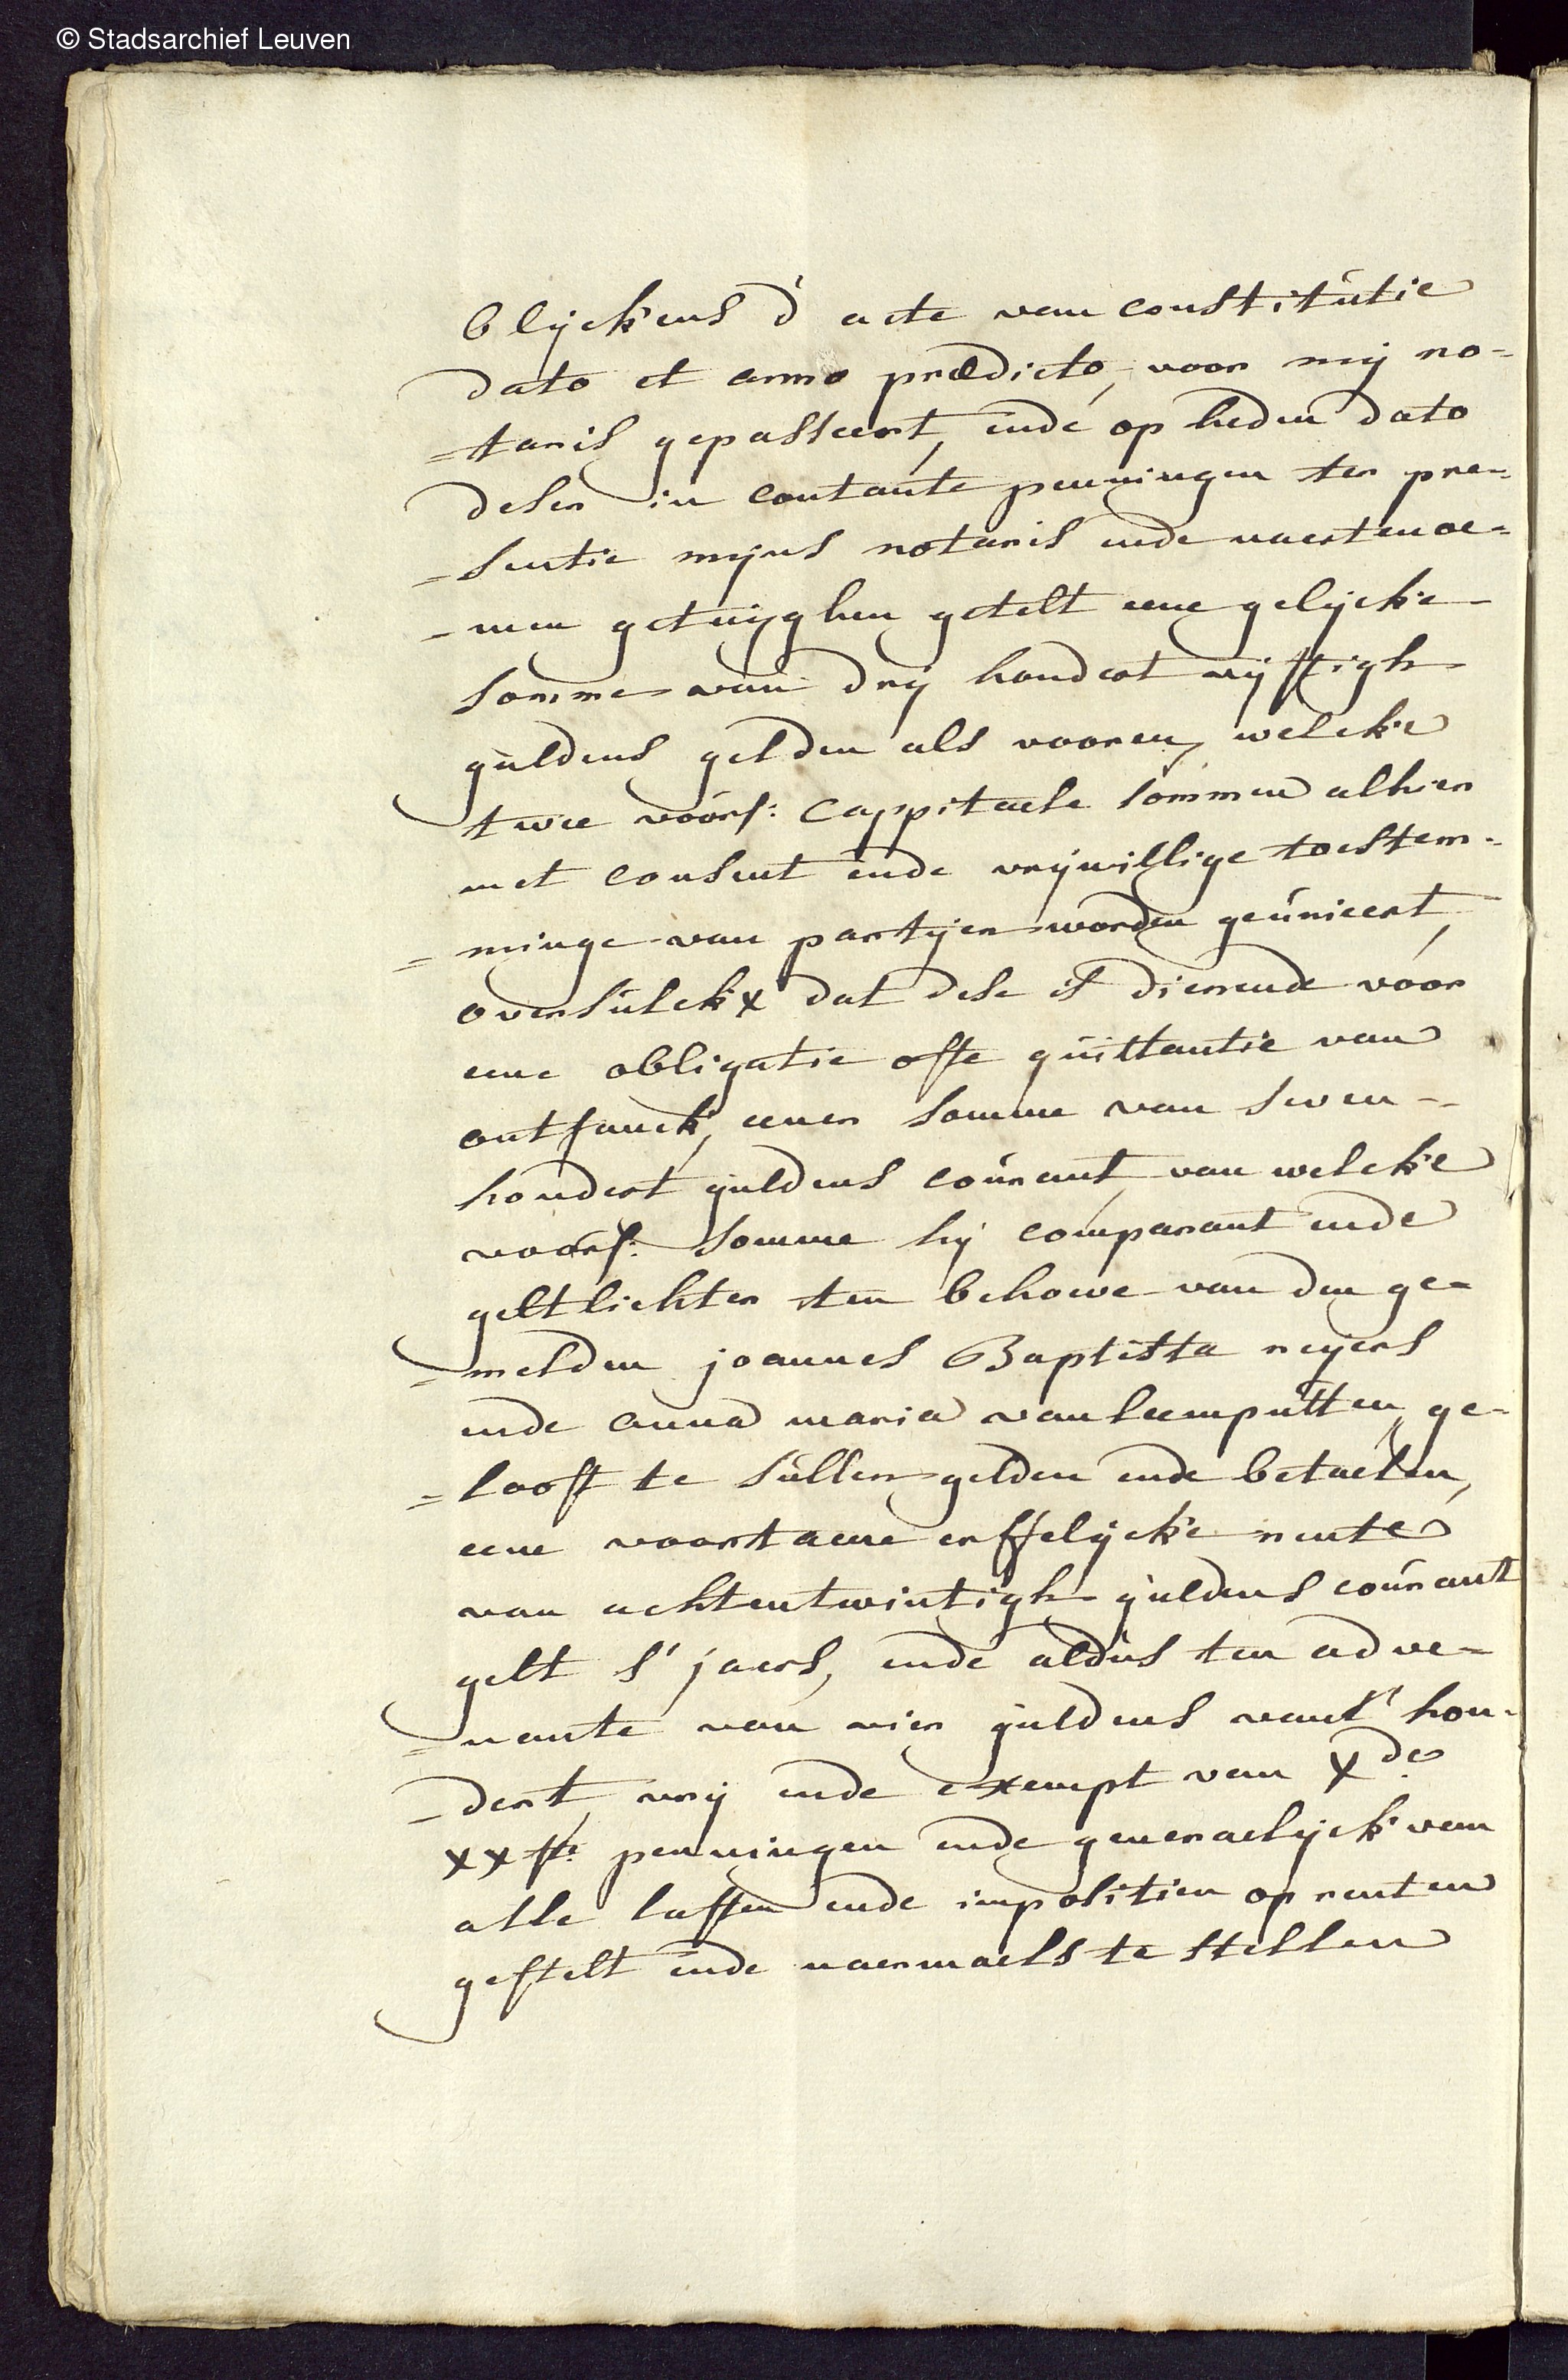 © Stadsarchief Leuven
blijckens d' acte van constitutie
dato et anno prædicto, voor mij no-
=taris gepasseert, ende op heden dato
deser in contante penningen ter pre-
=sentie mijns notaris ende naertenoe-
-men getuijghen getelt eene gelijcke
somme van drij hondert vijftigh
guldens gelden als vooren, welcke
twee voors: cappitaele sommen alhier
met consent ende vrijwillige toestem-
=minge van partijen worden geunieert,
oversulckx dat dese is dienende voor
eene obligatie ofte quittantie van
ontfanck, eener somme van seven-
hondert guldens courant, van welcke
voors: somme hij comparant ende
geltlichter ten behoeve van den ge-
=melden joannes Baptista reijers
ende anna maria van leemputten, ge-
=looft te sullen gelden ende betaelen,
eene voortaene erffelijcke rente
van achtentwintigh guldens courant
gelt s' jaers, ende aldus ten adve-
=nante van vier guldens vant' hon-
-dert, vrij ende exempt van xde
xxste penningen ende generaelijck van
alle lasten ende impositien op renten
gestelt ende naermaels te stellen